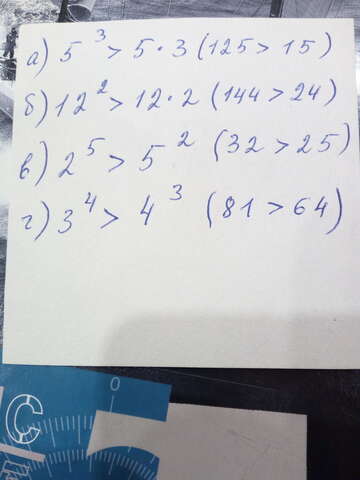 а) 5³ > 5 · 3 (125 > 15)
б) 12² > 12 · 2 (144 > 24)
в) 2⁵ > 5² (32 > 25)
г) 3⁴ > 4³ (81 > 64)
0
C